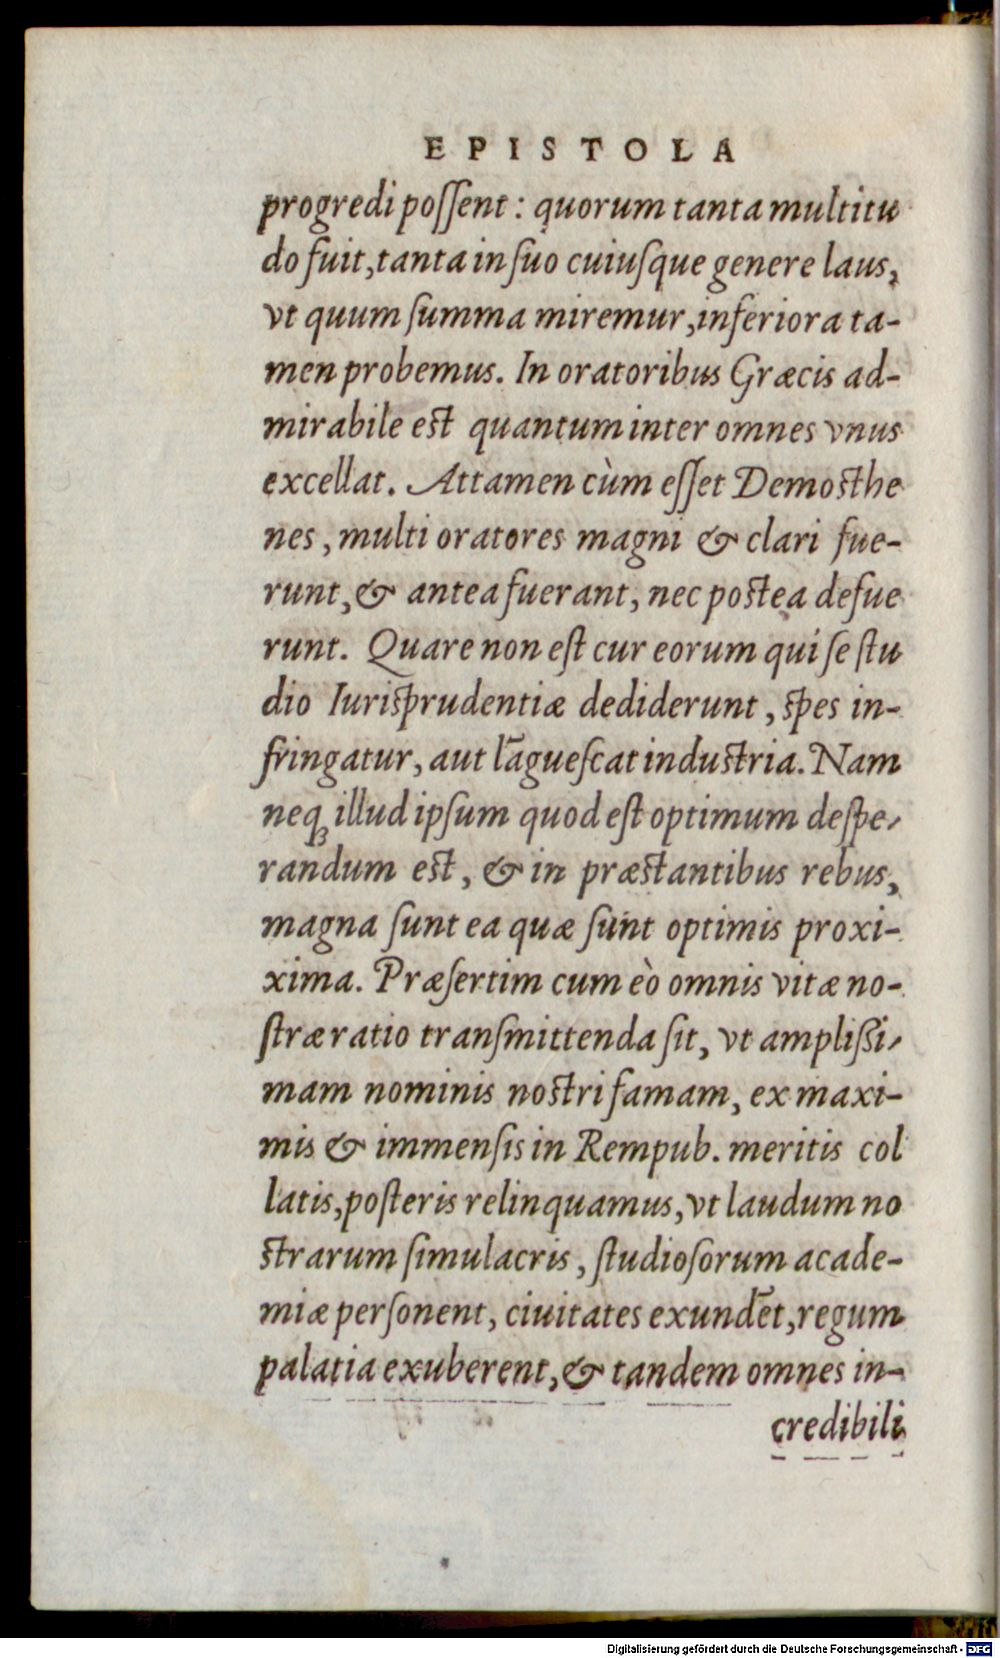 EPISTOLA
progredi poſſent : quorum tanta multitu
do fuit, tanta in ſuo cuiuſque genere laus,
vt quum ſumma miremur, inferiora ta-
men probemus. In oratoribus Græcis ad-
mirabile eſt quantum inter omnes vnus
excellat. Attamen cùm eſſet Demoſthe
nes, multi oratores magni & clari fue-
runt, & antea fuerant, nec poſtea defue
runt. Quare non eſt cur eorum qui ſe ſtu
dio Iuriſprudentiæ dediderunt, ſpes in-
fringatur, aut lāgueſcat induſtria. Nam
neqꝫ illud ipſum quod eſt optimum deſpe-
randum eſt, & in præſtantibus rebus,
magna ſunt ea quæ ſunt optimis proxi-
xima. Præſertim cum eò omnis vitæ no-
ſtræ ratio tranſmittenda ſit, vt ampliſsi-
mam nominis noſtri famam, ex maxi-
mis & immenſis in Rempub. meritis col
latis, poſteris relinquamus, vt laudum no
ſtrarum ſimulacris, ſtudioſorum acade-
miæ perſonent, ciuitates exundēt, regum
palatia exuberent, & tandem omnes in-
credibili
Digitalisierung gefördert durch die Deutsche Forschungsgemeinschaft - DFG